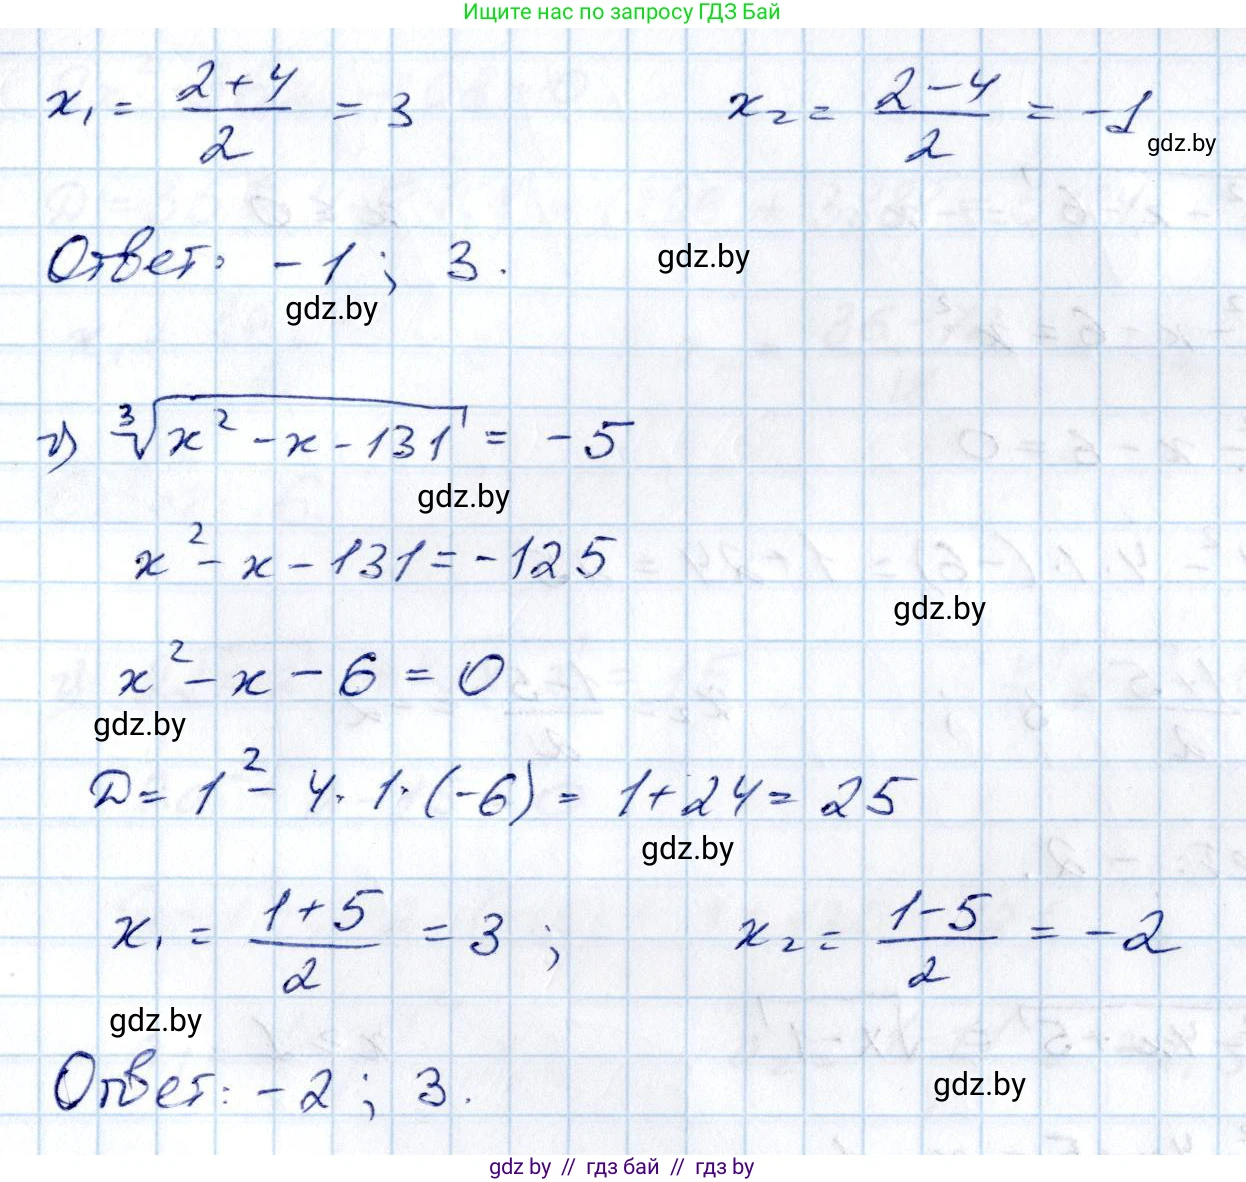 Ищите нас по запросу ГДЗ Бай
x₁ = (2+4)/2 = 3     x₂ = (2−4)/2 = −1
gdz.by
Ответ: −1; 3.
gdz.by
gdz.by
г) ∛(x² − x − 131) = −5
gdz.by
x² − x − 131 = −125
gdz.by
x² − x − 6 = 0
gdz.by
D = 1² − 4·1·(−6) = 1+24 = 25
gdz.by
x₁ = (1+5)/2 = 3;     x₂ = (1−5)/2 = −2
gdz.by
Ответ: −2; 3.
gdz.by
gdz by // гдз бай // гдз by